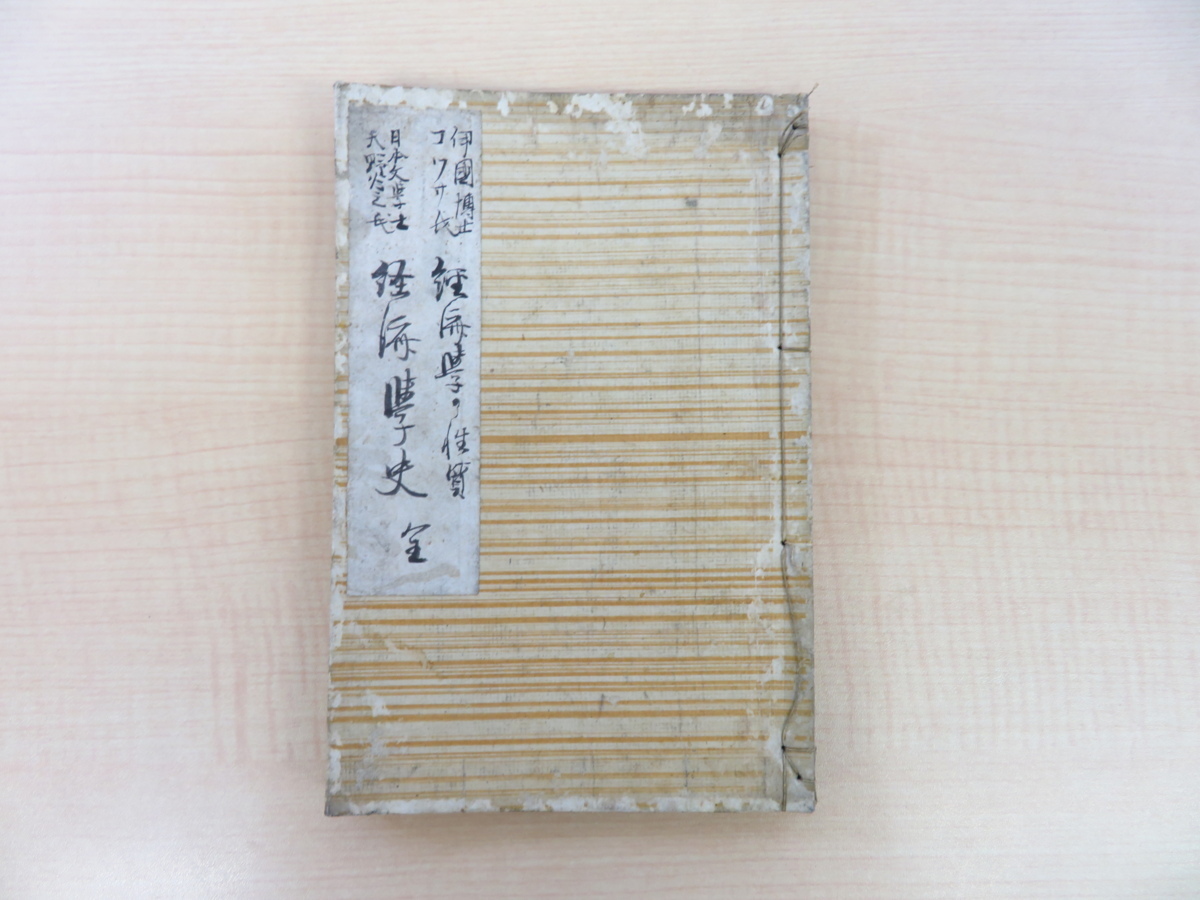 伊國博士
コツサ氏
經済學の性質
日本文學士
天野為之氏
経済學史
全